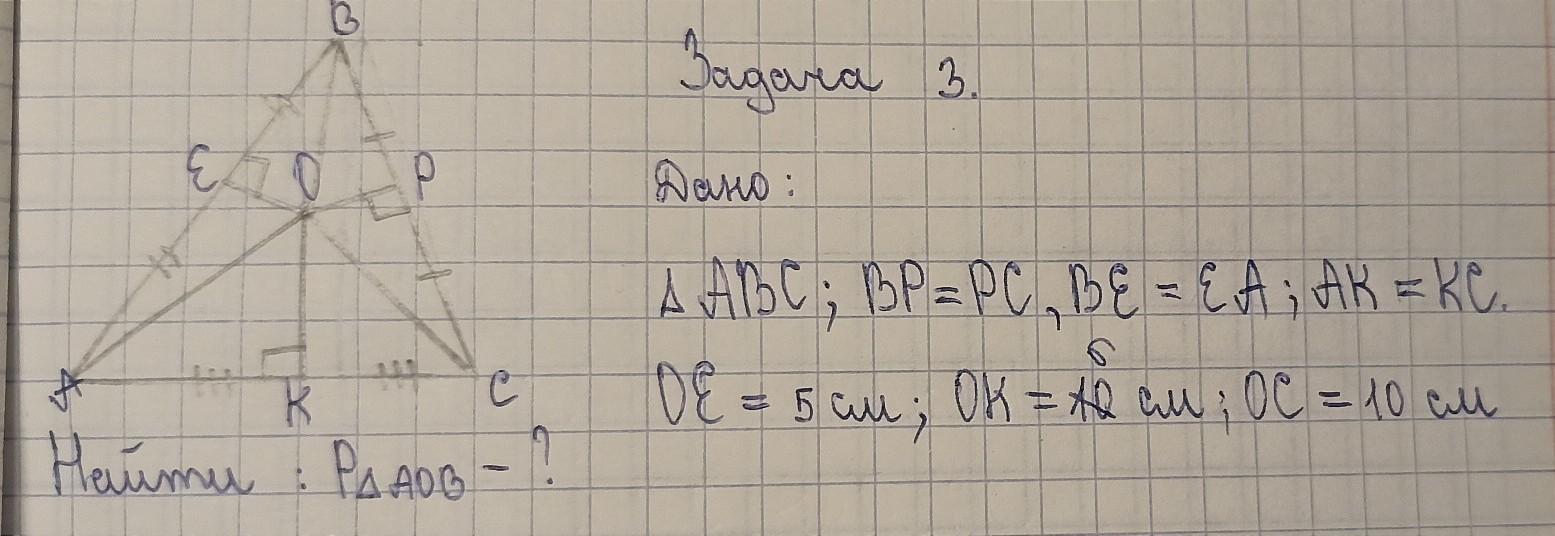 B
Задача 3.
E O P
Дано:
Δ ABC; BP = PC, BE = EA; AK = KC.
A K C
OE = 5 см; OK = 6 см; OC = 10 см
Найти : PΔAOB - ?